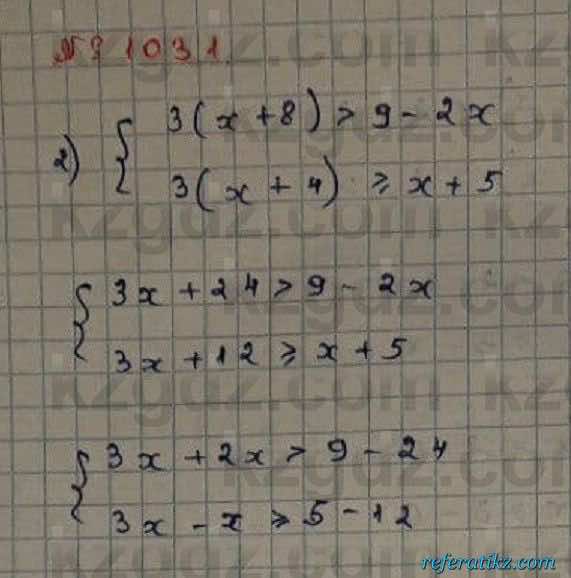 № 1031.
2) { 3(x+8) > 9-2x
3(x+4) ≥ x+5
{ 3x+24 > 9-2x
3x+12 ≥ x+5
{ 3x+2x > 9-24
3x-x ≥ 5-12
referatikz.com